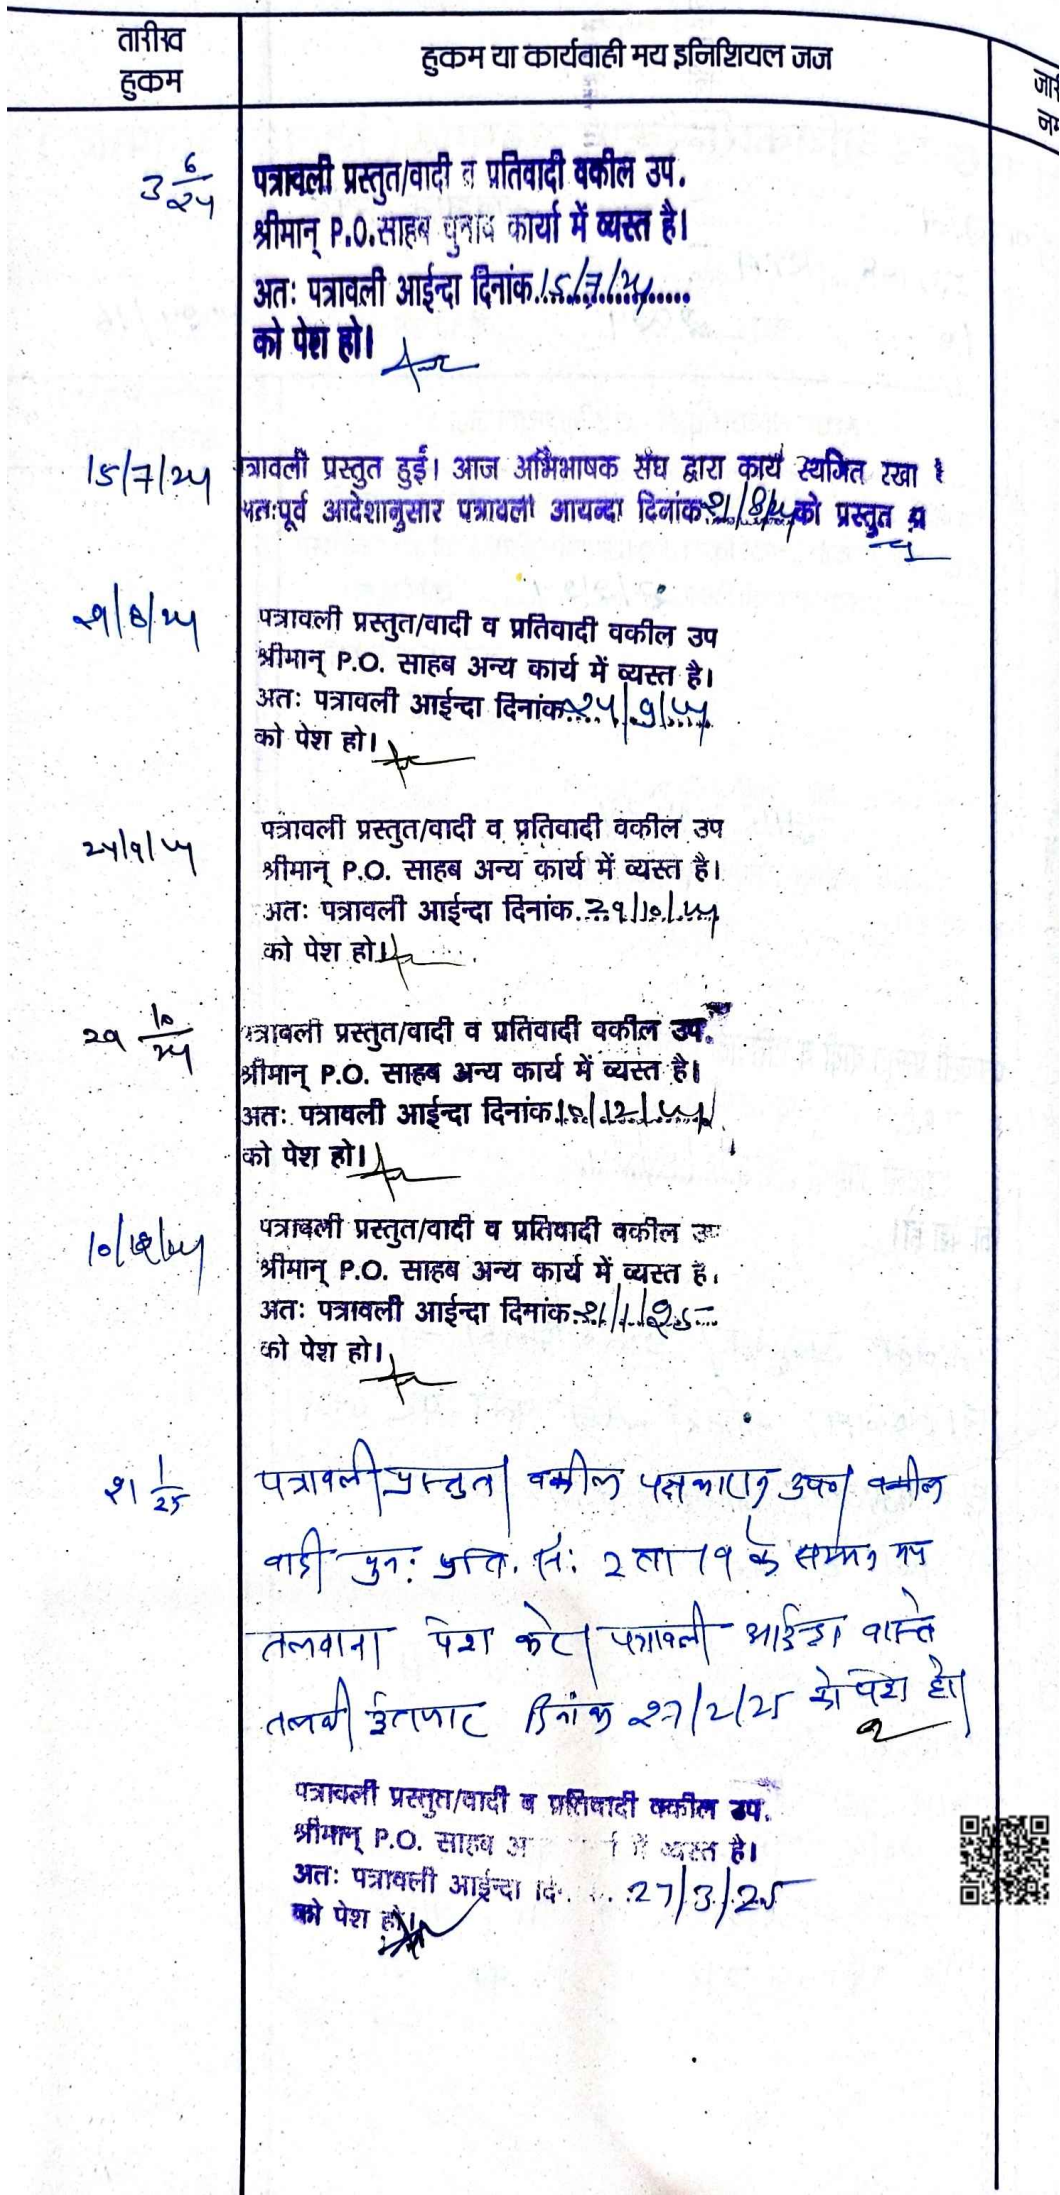 तारीख
हुकम
हुकम या कार्यवाही मय इनिशियल जज
3 6/24
पत्रावली प्रस्तुत/वादी व प्रतिवादी वकील उप.
श्रीमान् P.O.साहब चुनाव कार्यो में व्यस्त है।
अतः पत्रावली आईन्दा दिनांक 15/7/24
को पेश हो।
15/7/24
त्रावली प्रस्तुत हुई। आज अभिभाषक संघ द्वारा कार्य स्थगित रखा
अतःपूर्व आदेशानुसार पत्रावली आयन्दा दिनांक 21/8/24 को प्रस्तुत
21/8/24
पत्रावली प्रस्तुत/वादी व प्रतिवादी वकील उप
श्रीमान् P.O. साहब अन्य कार्य में व्यस्त है।
अतः पत्रावली आईन्दा दिनांक 24/9/24
को पेश हो।
24/9/24
पत्रावली प्रस्तुत/वादी व प्रतिवादी वकील उप
श्रीमान् P.O. साहब अन्य कार्य में व्यस्त है।
अतः पत्रावली आईन्दा दिनांक 29/10/24
को पेश हो।
29 10/24
त्रावली प्रस्तुत/वादी व प्रतिवादी वकील उप.
श्रीमान् P.O. साहब अन्य कार्य में व्यस्त है।
अतः पत्रावली आईन्दा दिनांक 10/12/24
को पेश हो।
10/12/24
पत्रावली प्रस्तुत/वादी व प्रतिवादी वकील उप
श्रीमान् P.O. साहब अन्य कार्य में व्यस्त है.
अतः पत्रावली आईन्दा दिनांक 21/1/25
को पेश हो।
21 1/25
पत्रावली प्रस्तुत। वकील पक्षकारान् उप०। वकील
वादी पुनः प्रति. सं. 2 ता 19 के सम्मन मय
तलवाना पेश करे। पत्रावली आईन्दा वास्ते
तलबी दिनांक 27/2/25 को पेश हो।
पत्रावली प्रस्तुत/वादी व प्रतिवादी वकील उप.
श्रीमान् P.O. साहब अ में व्यस्त है।
अतः पत्रावली आईन्दा दि 27/3/25
को पेश हो।